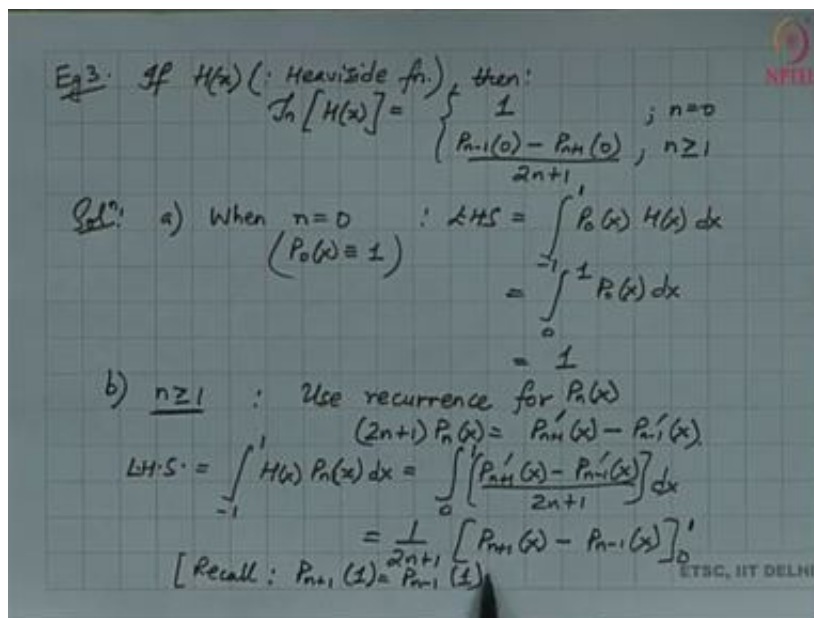 Eg 3. If H(x) (: Heaviside fn.), then:
𝒥n [H(x)] = { 1 ; n=0
(Pn-1(0) - Pn+1(0)) / (2n+1) , n≥1
NPTEL
Solⁿ: a) When n=0 : LHS = ∫_{-1}^{1} P₀(x) H(x) dx
(P₀(x) ≡ 1)
= ∫_{0}^{1} P₀(x) dx
= 1
b) n≥1 : Use recurrence for Pn(x)
(2n+1) Pn(x) = P'n+1(x) - P'n-1(x).
L.H.S. = ∫_{-1}^{1} H(x) Pn(x) dx = ∫_{0}^{1} [(P'n+1(x) - P'n-1(x)) / (2n+1)] dx
= 1/(2n+1) [Pn+1(x) - Pn-1(x)]_{0}^{1}
[Recall : Pn+1(1) = Pn-1(1)
ETSC, IIT DELHI